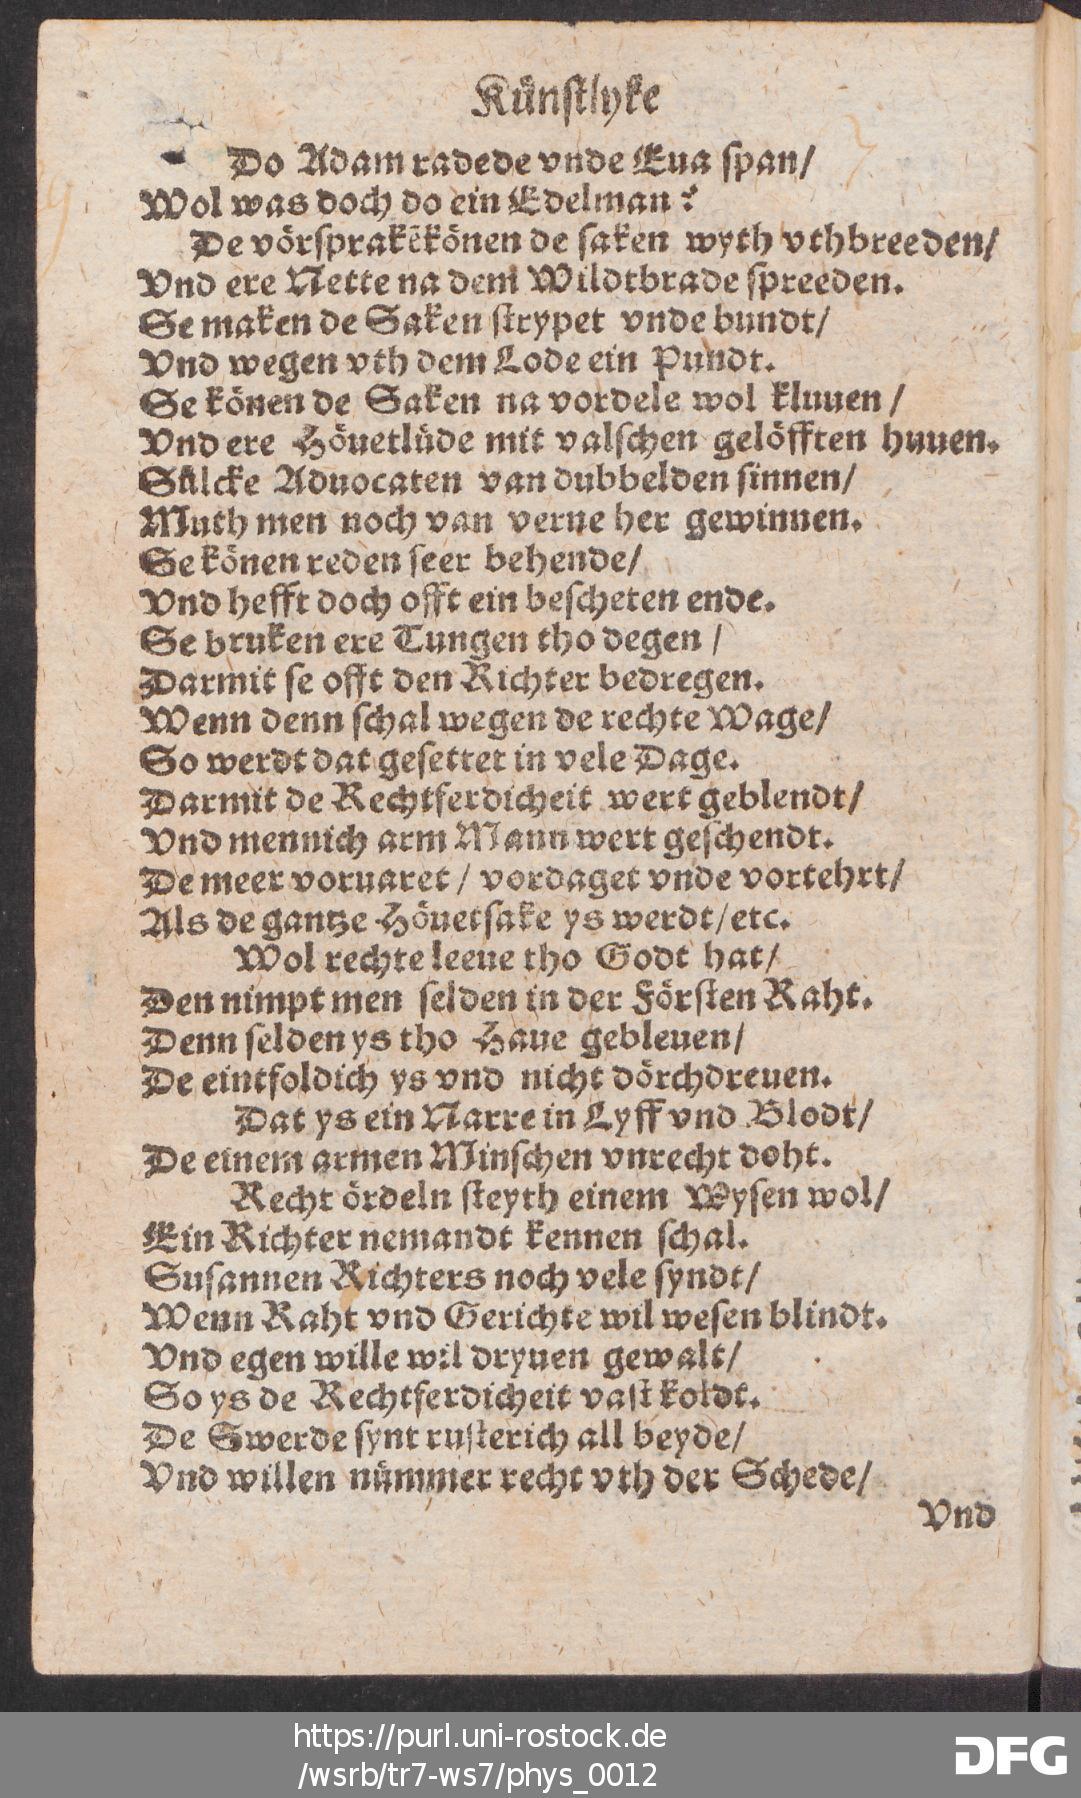 Künstlyke
Do Adam radede vnde Eua span/
Wol was doch do ein Edelman?
De vörsprakẽ könen de saken wyth vthbreeden/
Vnd ere Nette na dem Wildtbrade spreeden.
Se maken de Saken strypet vnde bundt/
Vnd wegen vth dem Lode ein Pundt.
Se könen de Saken na vordele wol kluuen/
Vnd ere Höuetlüde mit valschen gelöfften huuen.
Sülcke Aduocaten van dubbelden sinnen/
Muth men noch van verne her gewinnen.
Se könen reden seer behende/
Vnd hefft doch offt ein bescheten ende.
Se bruken ere Tungen tho degen/
Darmit se offt den Richter bedregen.
Wenn denn schal wegen de rechte Wage/
So werdt dat gesettet in vele Dage.
Darmit de Rechtferdicheit wert geblendt/
Vnd mennich arm Mann wert geschendt.
De meer voruaret/ vordaget vnde vortehrt/
Als de gantze Höuetsake ys werdt/etc.
Wol rechte leeue tho Godt hat/
Den nimpt men selden in der Försten Raht.
Denn selden ys tho Haue gebleuen/
De eintfoldich ys vnd nicht dörchdreuen.
Dat ys ein Narre in Lyff vnd Blodt/
De einem armen Minschen vnrecht doht.
Recht ördeln steyth einem Wysen wol/
Ein Richter nemandt kennen schal.
Susannen Richters noch vele syndt/
Wenn Raht vnd Gerichte wil wesen blindt.
Vnd egen wille wil dryuen gewalt/
So ys de Rechtferdicheit vast koldt.
De Swerde synt rusterich all beyde/
Vnd willen nümmer recht vth der Schede/
Vnd
https://purl.uni-rostock.de
/wsrb/tr7-ws7/phys_0012
DFG